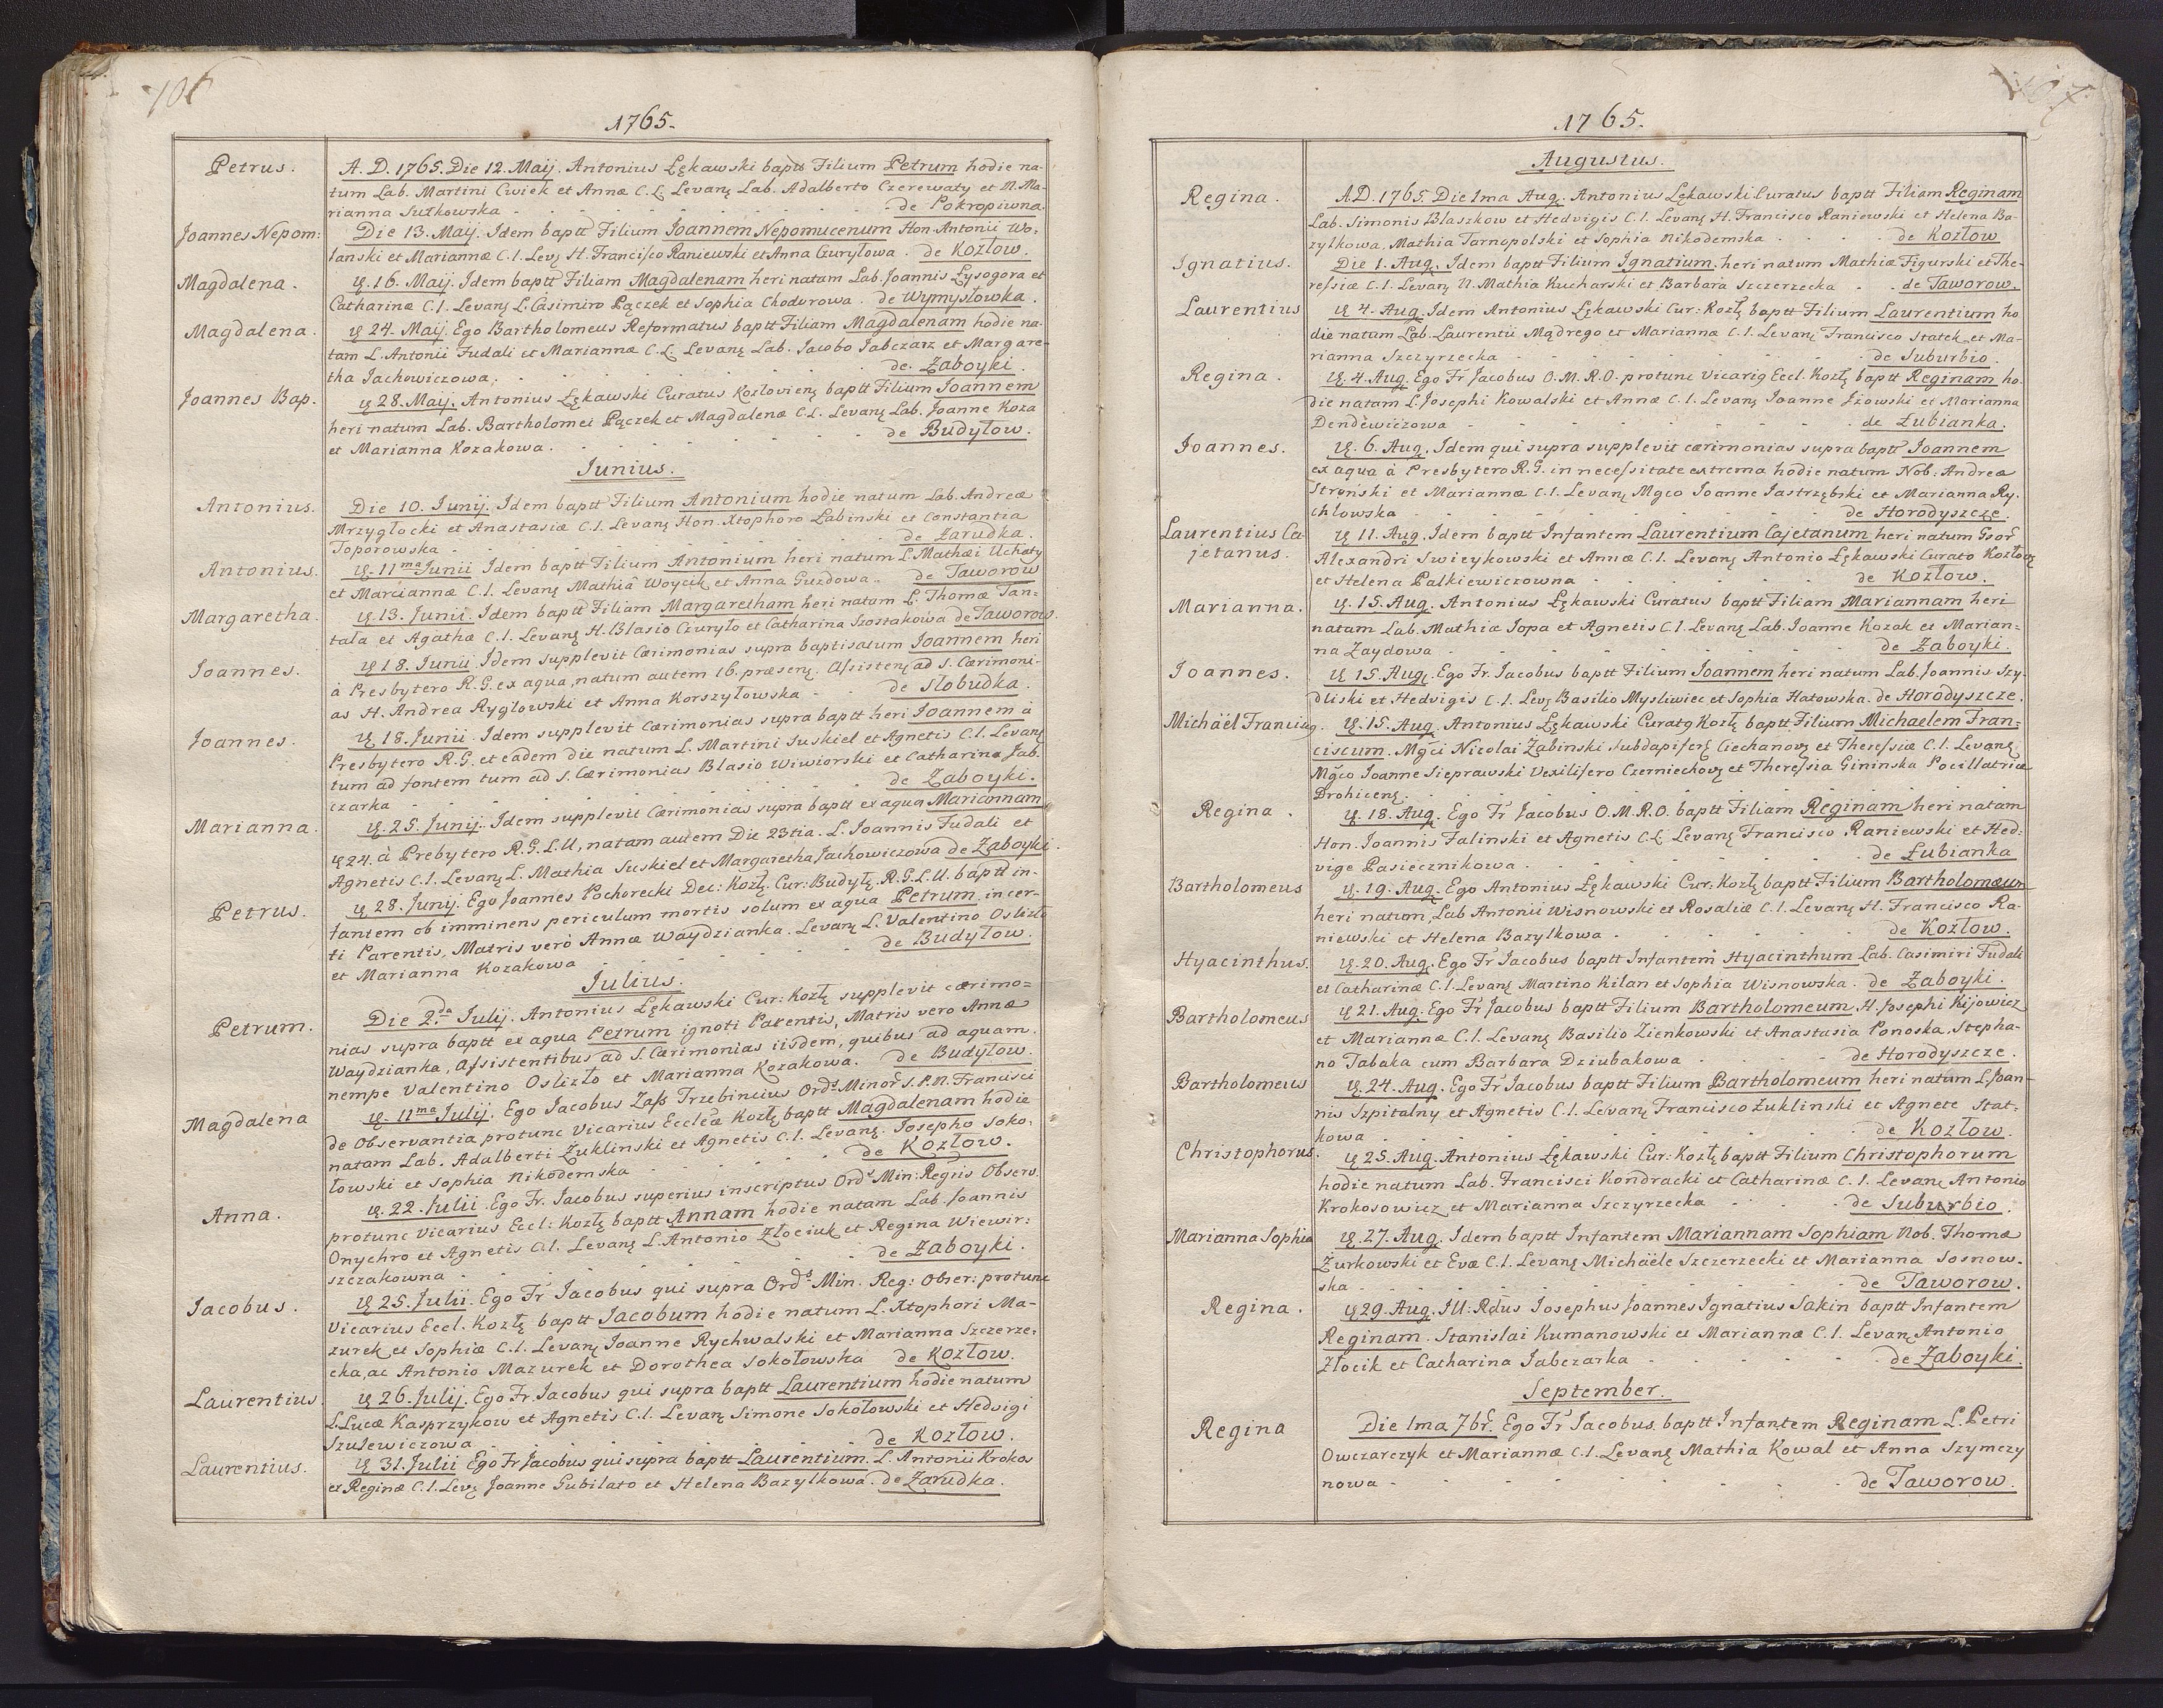 106
1765.
Petrus.
A. D. 1765. Die 12. Maij. Antonius Łękawski baptt Filium Petrum hodie na-
tum Lab. Martini Cwiek et Annæ C. L. Levanę Lab. Adalberto Czerewaty et N. Ma-
rianna Sutkowska . de Pokropiwna.
Joannes Nepom:
Die 13. Maij. Idem baptt Filium Joannem Nepomucenum Hon. Antonii Wo-
lanski et Mariannæ C. l. Levę H. Francisco Raniewski et Anna Guryłowa . de Kozłow.
Magdalena.
ię. 16. Maij. Idem baptt Filiam Magdalenam heri natam Lab. Joannis Łysogora et
Catharinæ C. l. Levanę L. Casimiro Pączek et Sophia Chodorowa . de Wymysłowka.
Magdalena.
ię 24. Maij. Ego Bartholomeus Reformatus baptt Filiam Magdalenam hodie na-
tam L. Antonii Fudali et Mariannæ C. L. Levanę Lab. Jacobo Jabczarz et Margare-
tha Jachowiczowa, . de Zaboyki.
Joannes Bap.
ię 28. Maij. Antonius Łękawski Curatus Kozlovienę baptt Filium Joannem
heri natum Lab. Bartholomei Pączek et Magdalenæ C. L. Levanę Lab. Joanne Koza
et Marianna Kozakowa . de Budyłow.
Junius.
Antonius.
Die 10. Junij. Idem baptt Filium Antonium hodie natum Lab. Andreæ
Mrzygłocki et Anastasiæ C. l. Levanę Hon. Xtophoro Labinski et Constantia
Toporowska . de Zarudka.
Antonius.
ię. 11ma Junii Idem baptt Filium Antonium heri natum L. Mathæi Uchaty
et Mariannæ C. l. Levanę Mathiâ Woycik et Anna Guzdowa . de Taworow
Margaretha.
ię. 13. Junii. Idem baptt Filiam Margaretham heri natam L. Thomæ Tan-
tała et Agathæ C. l. Levanę H. Blasio Czuryło et Catharina Szostakowa de Taworow.
Joannes.
ię 18. Junii. Idem supplevit Cærimonias supra baptisatum Joannem heri
à Presbytero R. G. ex aqua, natum autem 16. præsenę. Assistenę ad S. Cærimoni-
as H. Andrea Ryglowski et Anna Korszyłowska . de Słobudka.
Joannes.
ię. 18. Junii. Idem supplevit Cærimonias supra baptt heri Joannem à
Presbytero R. G. et eâdem die natum L. Martini Suskiel et Agnetis C. l. Levanę
tum ad fontem tum ad S. Cærimonias Blasio Wiwiorski et Catharina Jab-
czarka . de Zaboyki.
Marianna.
ię. 25. Junij. Idem supplevit Cærimonias supra baptt ex aqua Mariannam
ię 24. à Prebytero R. G. L. U, natam autem Die 23tia. L. Joannis Fudali et
Agnetis C. l. Levanę L. Mathia Suskiel et Margaretha Jachowiczowa de Zaboyki.
Petrus.
ię 28. Junij. Ego Joannes Pochorecki Dec: Kozłę. Cur: Budyłę. R. G. L. U. baptt in-
fantem ob imminens periculum mortis solum ex aqua Petrum incer-
ti Parentis, Matris verò Annæ Waydzianka. Levanę L. Valentino Oslizło
et Marianna Kozakowa . de Budyłow.
Julius.
Petrum.
Die 2.da Julij. Antonius Łękawski Cur: Kozłę supplevit cærimo-
nias supra baptt ex aqua Petrum ignoti Parentis, Matris vero Annæ
Waydzianka, Assistentibus ad S. Cærimonias iisdem, quibus ad aquam.
nempe Valentino Oslizło et Marianna Kozakowa. de Budyłow.
Magdalena
ię. 11ma Julij. Ego Jacobus Zass Trzebincius Ords Minor S. P. N. Francisci
de Observantia protunc Vicarius Eccleæ Kozłę baptt Magdalenam hodie
natam Lab. Adalberti Żuklinski et Agnetis C. l. Levanę. Josepho Soko-
łowski et Sophia Nikodemska . de Kozłow.
Anna.
ię. 22. Julii. Ego Fr. Jacobus superius inscriptus Ords Min: Regiis Observ.
protunc Vicarius Eccl: Kozłę baptt Annam hodie natam Lab. Joannis
Onychro et Agnetis C. l. Levanę L. Antonio Złociuk et Regina Wiewir-
szczakowna . de Zaboyki.
Jacobus.
ię 25. Julii. Ego Fr Jacobus qui supra Ords Min. Reg: Obser: protunc
Vicarius Eccl. Kozłę baptt Jacobum hodie natum L. Xtophori Ma-
zurek et Sophiæ C. l. Levanę Joanne Rychwalski et Marianna Szczerze-
cka, ac Antonio Mazurek et Dorothea Sokołowska de Kozłow.
Laurentius.
ię 26. Julij. Ego Fr Jacobus qui supra baptt Laurentium hodie natum
L. Lucæ Kasprzykow et Agnetis C. l. Levanę Simone Sokołowski et Hedvigi
Szulewiczowa . de Kozłow.
Laurentius.
ię 31. Julii Ego Fr Jacobus qui supra baptt Laurentium. L. Antonii Krokos
et Reginæ C. l. Levę Joanne Gubilato et Helena Bazylkowa. de Zarudka.
107.
1765.
Augustus.
Regina.
A. D. 1765. Die 1ma Aug. Antonius Lękawski Curatus baptt Filiam Reginam
Lab. Simonis Blaszkow et Hedvigis C. l. Levanę H. Francisco Raniewski et Helena Ba-
zylkowa, Mathia Tarnopolski et Sophia Nikodemska . de Kozłow
Ignatius.
Die 1. Aug. Idem baptt Filium Ignatium. heri natum Mathiæ Figurski et The-
ressiæ C. l. Levanę N. Mathia Kucharski et Barbara Szczerzecka . de Taworow.
Laurentius
ię 4. Aug. Idem Antonius Łękawski Cur: Kozłę baptt Filium Laurentium ho
die natum Lab. Laurentii Mądrego et Mariannæ C. l. Levanę Francisco Statek et Ma-
rianna Szczyrzecka . de Suburbio.
Regina.
ię. 4. Aug. Ego Fr Jacobus O. M. R. O. protunc Vicarię Eccl. Kozłę baptt Reginam ho-
die natam L. Josephi Kowalski et Annæ C. l. Levanę Joanne Jżowski et Marianna
Dendewiczowa . de Łubianka.
Joannes.
ię. 6. Aug. Idem qui supra supplevit cærimonias supra baptt Joannem
ex aqua à Presbytero R. G. in necessitate extrema hodie natum Nob. Andreæ
Stroński et Mariannæ C. l. Levanę Mgco Joanne Jastrzębski et Marianna Ry-
chlowska . de Horodyszcze.
Laurentius Ca
jetanus.
ię 11. Aug. Idem baptt Infantem Laurentium Cajetanum heri natum Gsor
Alexandri Swieykowski et Annæ C. l. Levanę Antonio Łękawski Curato Kozłovę
et Helena Palkiewiczowna . de Kozłow.
Marianna.
ię. 15. Aug. Antonius Łękawski Curatus baptt Filiam Mariannam heri
natam Lab. Mathia Sopa et Agnetis C. l. Levanę Lab. Joanne Kozak et Marian-
na Zaydowa . de Zaboyki.
Joannes.
ię 15. Aug. Ego Fr. Jacobus baptt Filium Joannem heri natum Lab. Joannis Szy-
dliski et Hedvigis C. l. Levę Basilio Mysliwiec et Sophia Hatowska. de Horodyszcze.
Michäel Francisę.
ię. 15. Aug. Antonius Łękawski Curatę Kozłę baptt Filium Michaelem Fran-
ciscum. Mgci Nicolai Żabinski Subdapiferę Ciechanovę et Theressiæ C. l. Levanę
Mgco Joanne Sieprawski Vexilifero Czerniechovę et Theressia Gininska Pocillatrice
Drohicenę.
Regina.
ię. 18. Aug. Ego Fr Jacobus O. M. R. O. baptt Filiam Reginam heri natam
Hon. Joannis Falinski et Agnetis C. L. Levanę Francisco Raniewski et Hed-
vige Pasiecznikowa . de Łubianka
Bartholomeus
ię. 19. Aug. Ego Antonius Łękawski Cur: Kozłę baptt Filium Bartholomæum
heri natum, Lab Antonii Wisnowski et Rosaliæ C. l. Levanę H. Francisco Ra-
niewski et Helena Bazylkowa . de Kozłow.
Hyacinthus.
ię. 20. Aug. Ego Fr Jacobus baptt Infantem Hyacinthum Lab. Casimiri Fudali
et Catharinæ C. l. Levanę Martino Kilan et Sophia Wisnowska. de Zaboyki.
Bartholomeus
ię 21. Aug. Ego Fr Jacobus baptt Filium Bartholomeum H. Josephi Kijowicz
et Mariannæ C. l. Levanę Basilio Zienkowski et Anastasia Ponoska, Stepha-
no Tabaka cum Barbara Dziubakowa . de Horodyszcze.
Bartholomeus
ię. 24. Aug. Ego Fr Jacobus baptt Filium Bartholomeum heri natum L. Joan-
nis Szpitalny et Agnetis C. l. Levanę Francisco Żuklinski et Agnete Stat-
kowa . de Kozłow.
Christophorus.
ię 25. Aug. Antonius Łękawski Cur: Kozłę baptt Filium Christophorum
hodie natum Lab. Francisci Kondracki et Catharinæ C. l. Levanę Antonio
Krokosowicz et Marianna Szczyrzecka . de Suburbio.
Marianna Sophia
ię. 27. Aug. Idem baptt Infantem Mariannam Sophiam Nob. Thomæ
Żurkowski et Evæ C. l. Levanę Michäele Szczerzecki et Marianna Sosnow-
ska . de Taworow.
Regina.
ię 29. Aug. Ill: Rdus Josephus Joannes Ignatius Sakin baptt Infantem
Reginam. Stanislai Kumanowski et Mariannæ C. l. Levanę Antonio
Złocik et Catharina Jabczarka . de Zaboyki.
September.
Regina
Die 1ma 7br. Ego Fr Jacobus baptt Infantem Reginam L. Petri
Owczarczyk et Mariannæ C. l. Levanę Mathia Kowal et Anna Szymczy
nowa . de Taworow.